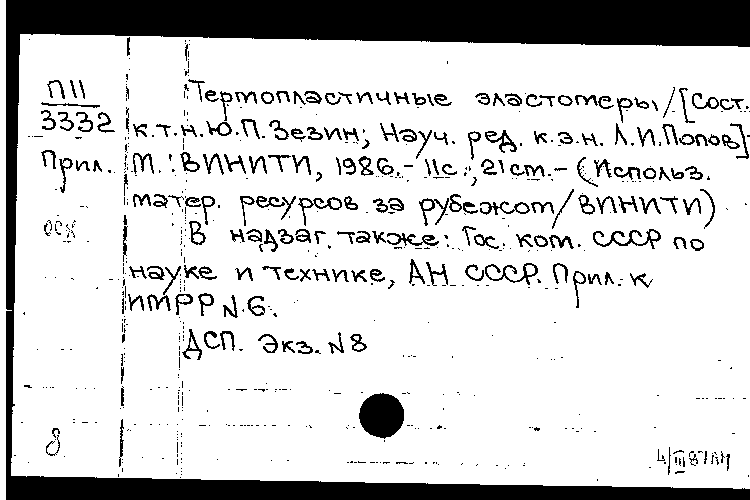 П11
3332
Прил.
Термопластичные эластомеры/[Сост.
к.т.н.Ю.П.Зезин; Науч. ред. к.э.н. Л.И.Попов]-
М.: ВИНИТИ, 1986.- 11с.; 21cm.- (Использ.
матер. ресурсов за рубежом/ВИНИТИ)
В надзаг. также: Гос. ком. СССР по
науке и технике, АН СССР. Прил. к
ИМРР N.6.
ДСП. Экз. N8
8
4/III 87